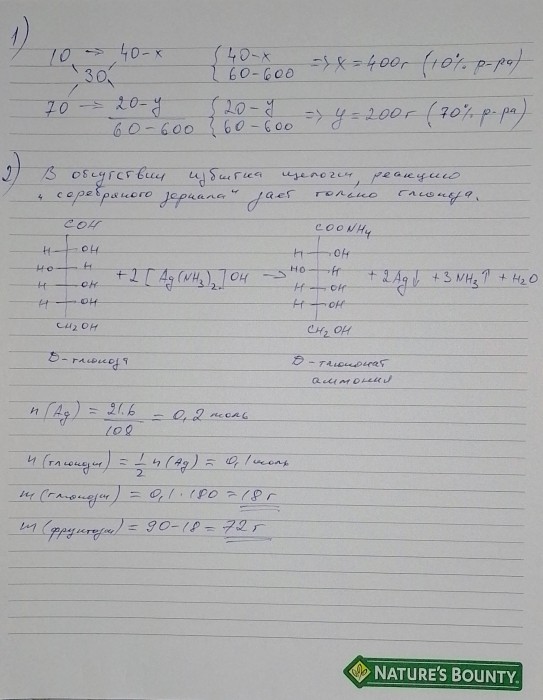 1)
10 → 40-x { 40-x
30 { 60-600 => x = 400г (10% р-ра)
70 → 20-y { 20-y
60-600 { 60-600 => y = 200г (70% р-ра)
2) В отсутствии избытка щелочи, реакцию
"серебряного зеркала" дает только глюкоза.
COH COONH4
H OH H OH
HO H + 2[Ag(NH3)2]OH → HO H + 2Ag↓ + 3NH3↑ + H2O
H OH H OH
H OH H OH
CH2OH CH2OH
D-глюкоза D-глюконат
аммония
n(Ag) = 21.6/108 = 0,2 моль
n(глюкозы) = 1/2 n(Ag) = 0,1 моль
m(глюкозы) = 0,1·180 = 18 г
m(фруктозы) = 90-18 = 72 г
NATURE'S BOUNTY